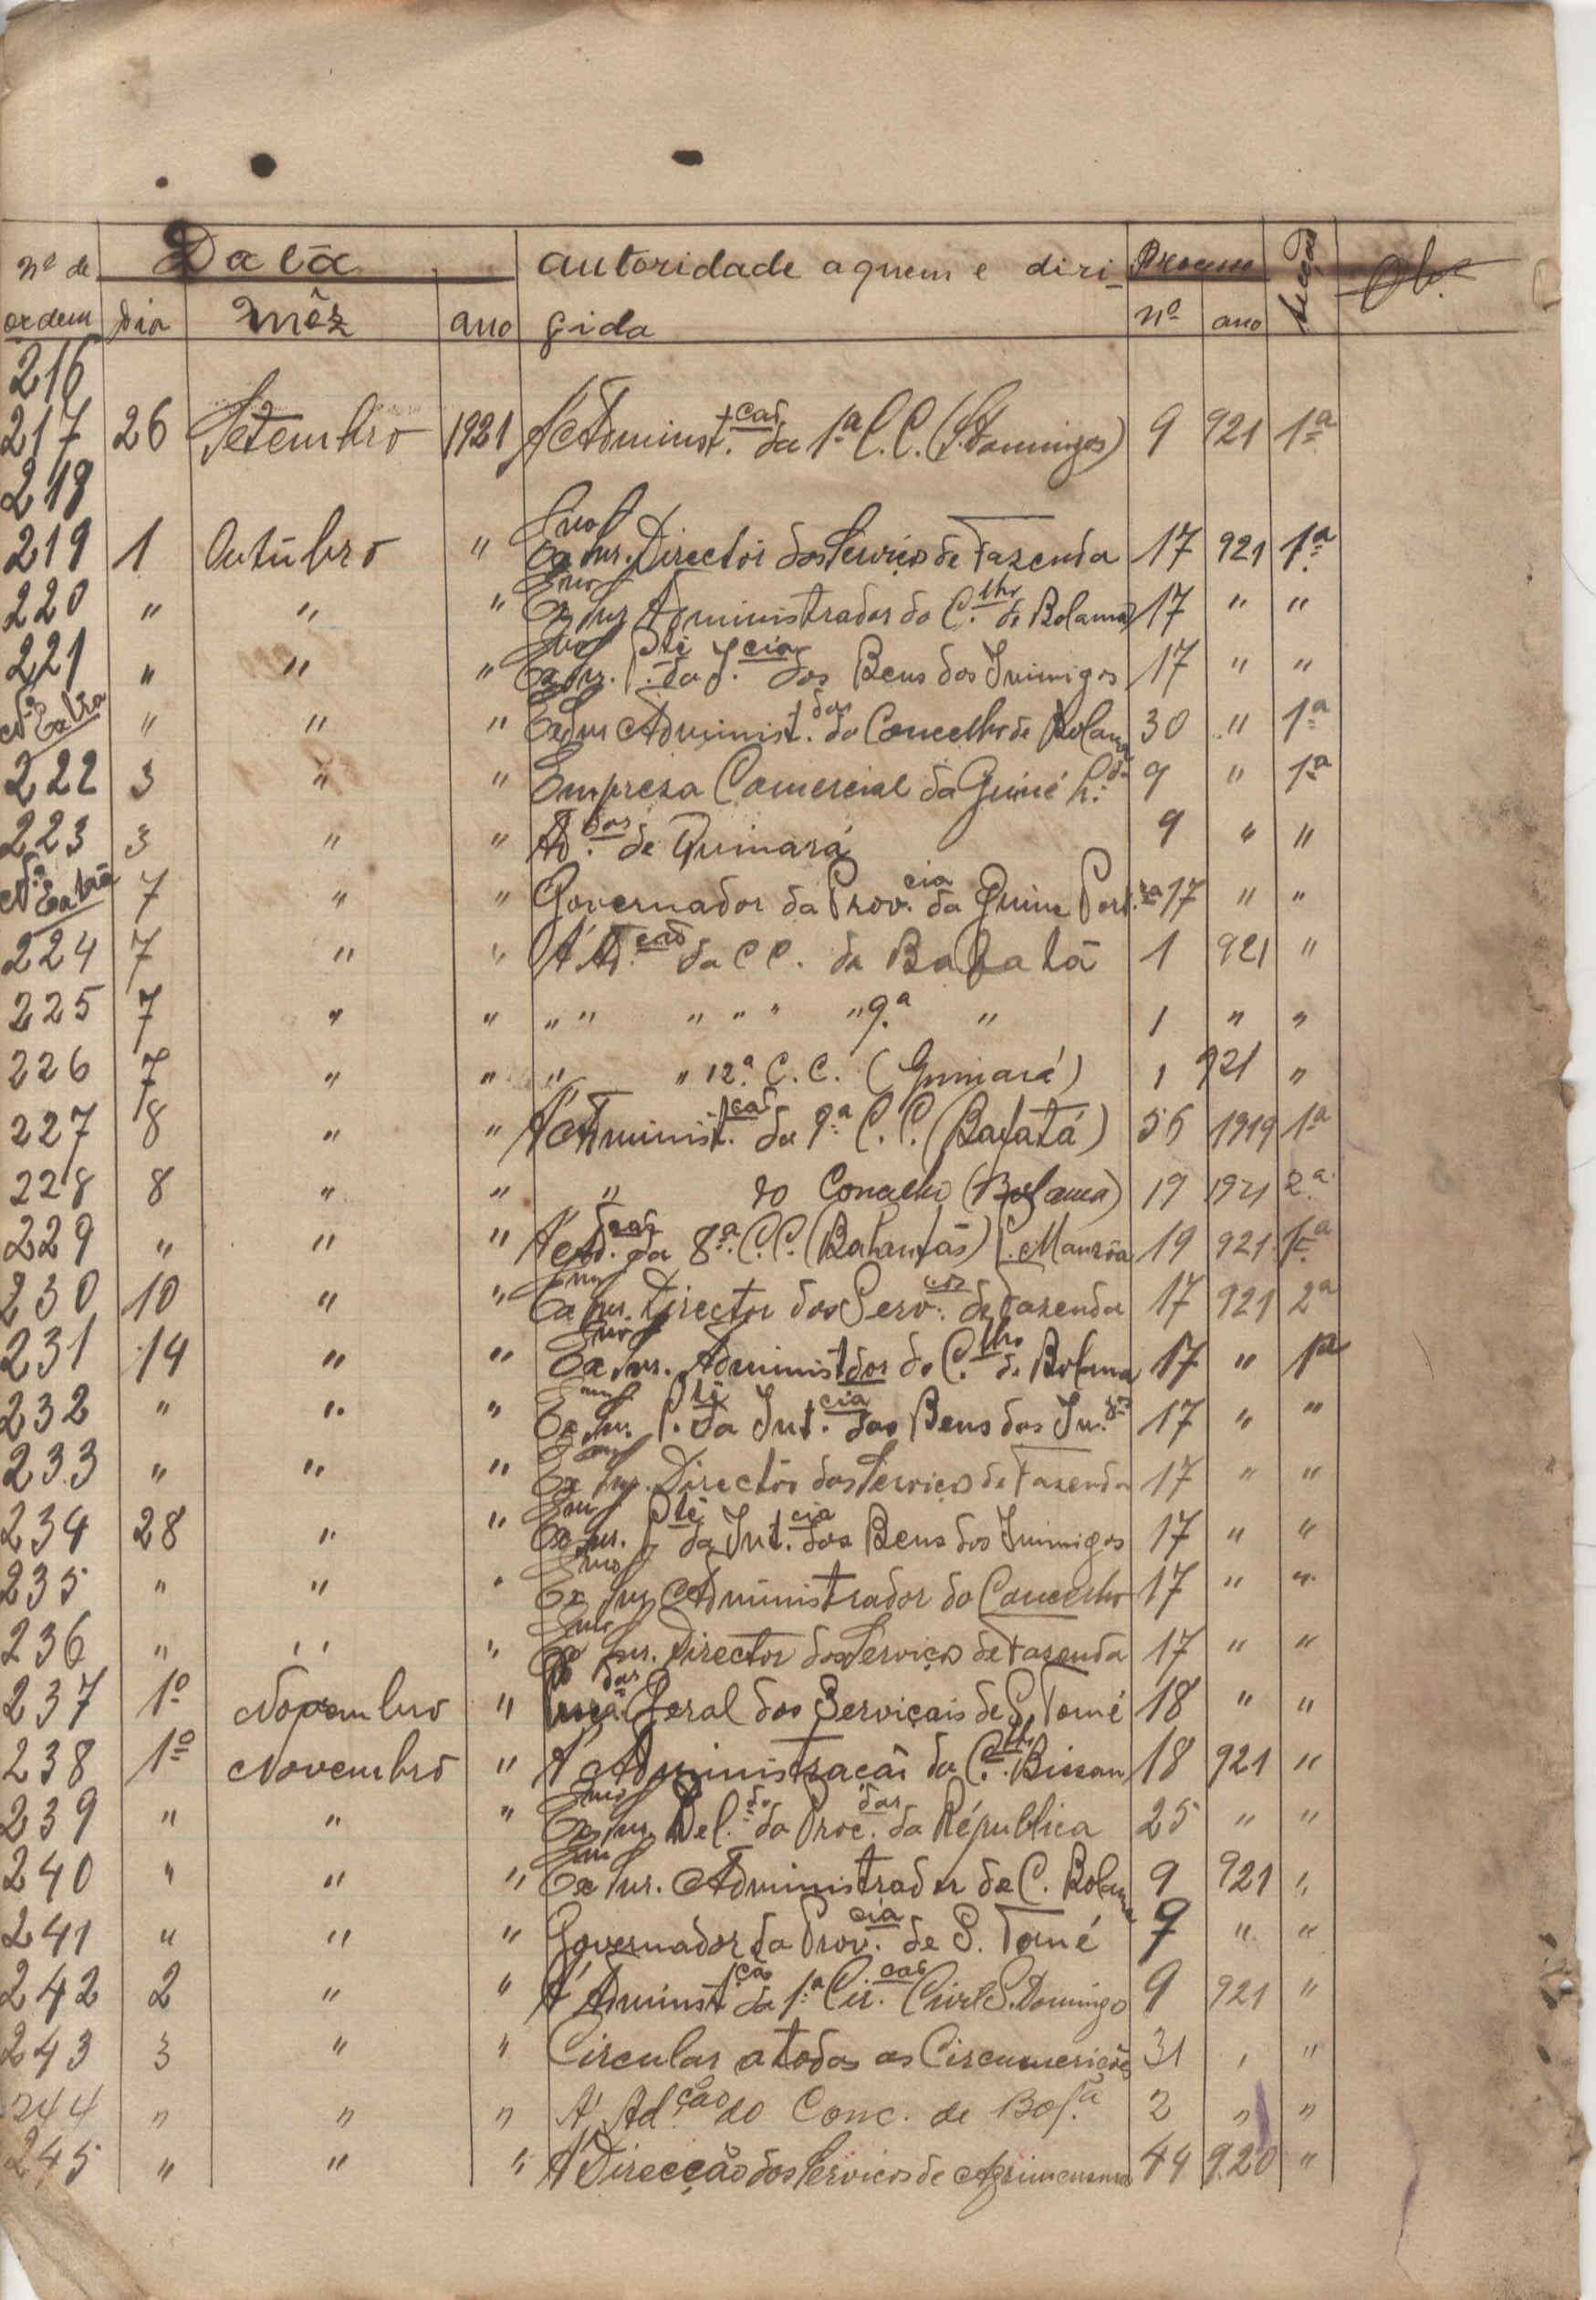 nº de Data autoridade aquem e diri- Processo Secç Ob.
ordem Dia Mêz ano gida nº ano
216
217 26 Setembro 1921 Á Administ.ção da 1ª C.C. (S. Domingos) 9 921 1ª
218
219 1 Outubro " Exmo Snr. Director dos Serviços de Fazenda 17 921 1ª
220 " " " Exmo Snr Administrador do C.lho de Bolama 17 " "
221 " " " Exmo Snr. P.te da I.cia dos Bens dos Inimigos 17 " "
Nº Extra " " " Ex Snr Administ.dor do Concelho de Bolama 30 " 1ª
222 3 " " Empreza Comercial da Guiné L.da 9 " 1ª
223 3 " " Ad.dor de Quinará 9 " "
Nº Extra 7 " " Governador da Prov.cia da Guine Port.za 17 " "
224 7 " " Á Ad.ção da CC. de Bafatá 1 921 "
225 7 " " " " " " " " 9.ª " 1 " "
226 7 " " " " 12.ª C.C. (Quinará) 1 921 "
227 8 " " Á Administ.ção da 9ª C.C. (Bafatá) 56 1919 1ª
228 8 " " " do Concelho (Bolama) 19 1921 2.ª
229 " " " Á Ad.ção da 8ª C.C. (Balantas) C. Mansôa 19 921 1ª
230 10 " " Exmo Snr. Director dos Serv.ços de Fazenda 17 921 2ª
231 14 " " Exmo Snr. Administdor do C.lho de Bolama 17 " 1ª
232 " " " Exmo Snr. P.te da Int.cia dos Bens dos In.gos 17 " "
233 " " " Exmo Snr. Directôr dos Serviços de Fazenda 17 " "
234 28 " " Exmo Snr. P.te da Int.cia dos Bens dos Inimigos 17 " "
235 " " " Exmo Snr Administrador do Concelho 17 " "
236 " " " Exmo Snr. Director dos Serviços de Fazenda 17 " "
237 1º Novembro " Geral dos Serviçais de S. Tomé 18 " "
238 1º Novembro " Á Administração do C.lho Bissau 18 921 "
239 " " " Exmo Snr Del.do do Proc.dor da Républica 25 " "
240 " " " Exmo Snr. Administrador de C. Bolama 9 921 "
241 " " " Governador da Prov.cia de S. Tomé 9 " "
242 2 " " Á Administ.ção da 1.ª Cir.ção Civil S. Domingo 9 921 "
243 3 " " Circular a todas as Circunscrições 31 " "
244 " " " Á Ad.ção do Conc. de Bol.ª 2 " "
245 " " " Á Direcção dos Serviços de Agrimensura 44 920 "